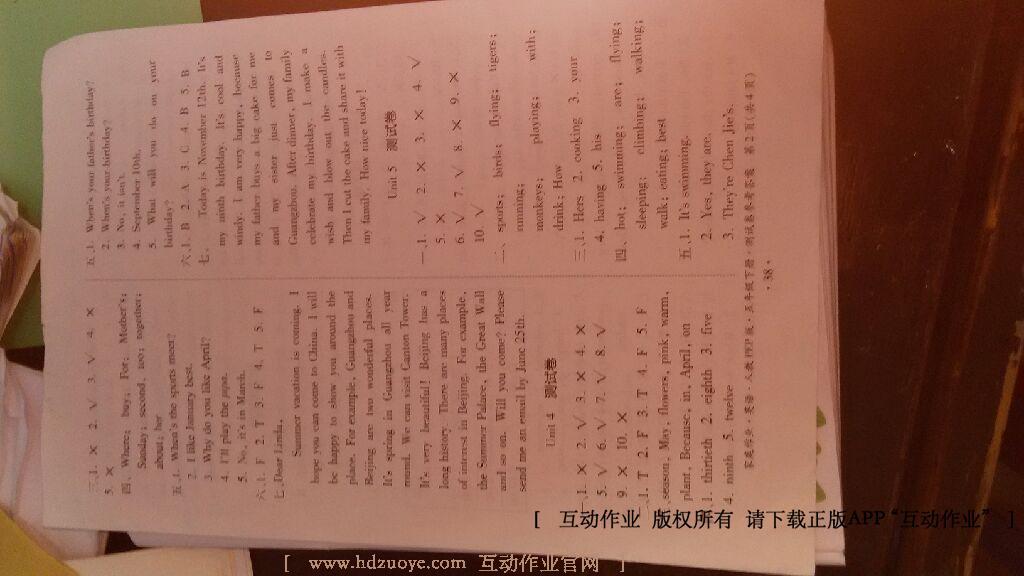 三、1. × 2. √ 3. √ 4. ×
5. ×
四、Where; buy; For; Mother's;
Sunday; second; too; together;
about; her
五、1. When's the sports meet?
2. I like January best.
3. Why do you like April?
4. I'll play the pipa.
5. No, it's in March.
六、1. F 2. T 3. F 4. T 5. F
七、Dear Linda,
Summer vacation is coming. I
hope you can come to China. I will
be happy to show you around the
place. For example, Guangzhou and
Beijing are two wonderful places.
It's spring in Guangzhou all year
round. We can visit Canton Tower.
It's very beautiful! Beijing has a
long history. There are many places
of interest in Beijing. For example,
the Summer Palace, the Great Wall
and so on. Will you come? Please
send me an email by June 25th.
Unit 4 测试卷
1. × 2. √ 3. × 4. ×
5. √ 6. √ 7. √ 8. √
9. × 10. ×
1. T 2. F 3. T 4. F 5. F
season, May, flowers, pink, warm,
plant, Because, in, April, on
1. thirtieth 2. eighth 3. five
4. ninth 5. twelve
五、1. When's your father's birthday?
2. When's your birthday?
3. No, it isn't.
4. September 10th.
5. What will you do on your
birthday?
六、1. B 2. A 3. C 4. B 5. B
七、Today is November 12th. It's
my ninth birthday. It's cool and
windy. I am very happy, because
my father buys a big cake for me
and my sister just comes to
Guangzhou. After dinner, my family
celebrate my birthday. I make a
wish and blow out the candles.
Then I cut the cake and share it with
my family. How nice today!
Unit 5 测试卷
一、1. √ 2. × 3. × 4. √
5. ×
6. √ 7. √ 8. × 9. ×
10. √
二、sports; birds; flying; tigers;
running; playing; with;
monkeys;
drink; How
三、1. Hers 2. cooking 3. your
4. having 5. his
四、hot; swimming; are; flying;
sleeping; climbing; walking;
walk; eating; best
五、1. It's swimming.
2. Yes, they are.
3. They're Chen Jie's.
家庭作业·英语·人教PEP版·五年级下册·测试卷参考答案 第2页(共4页)
·38·
[ 互动作业 版权所有 请下载正版APP“互动作业” ]
[ www.hdzuoye.com 互动作业官网 ]